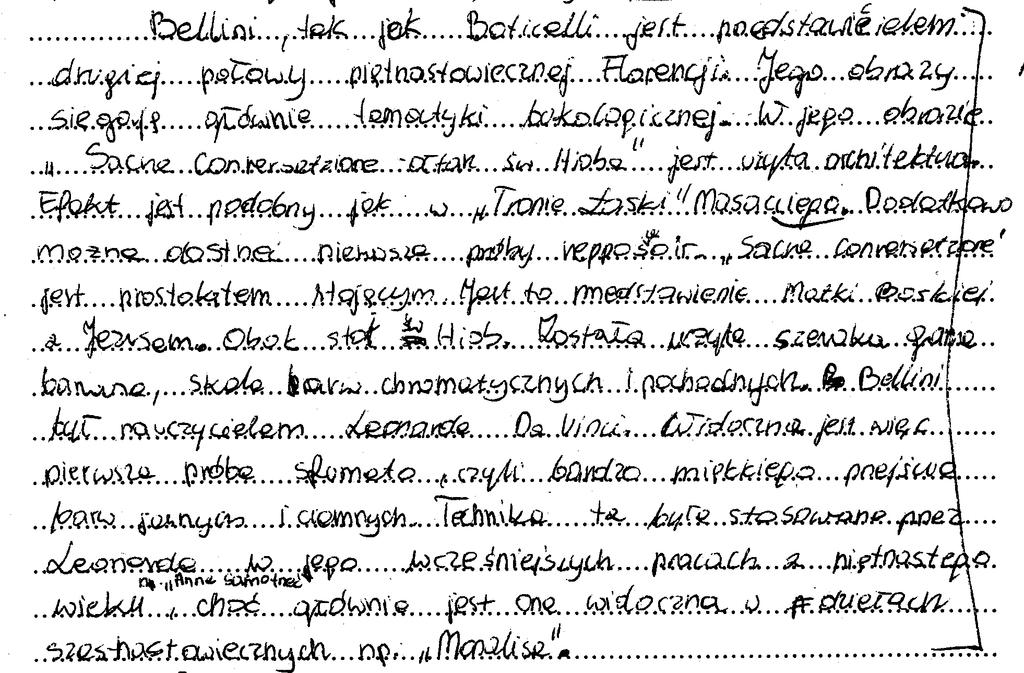 Bellini, tak jak Boticelli jest przedstawicielem
drugiej połowy piętnastowiecznej Florencji. Jego obrazy
sięgają głównie tematyki bukologicznej. W jego obrazie
„Sacne conversatzione ołtarz św. Hioba" jest użyta architektura.
Efekt jest podobny jak w „Tronie Łaski" Masacciego. Dodatkowo
można dostrzec pierwsze próby repposoir. „Sacne conversatzione"
jest prostokątem stojącym. Jest to przedstawienie Matki Boskiej
z Jezusem. Obok stoi św Hiob. Została użyta szeroka gama
barwna, skala barw chromatycznych i pochodnych. Bellini
był nauczycielem Leonarda Da Vinci. Widoczna jest więc
pierwsza próba sfumato, czyli bardzo miękkiego przejścia
barw jasnych i ciemnych. Technika ta była stosowana przez
Leonarda w jego wcześniejszych pracach z piętnastego
np. „Anna Samotrzeć"
wieku, choć głównie jest ona widoczna w dziełach
szesnastowiecznych np. „Monalisa".